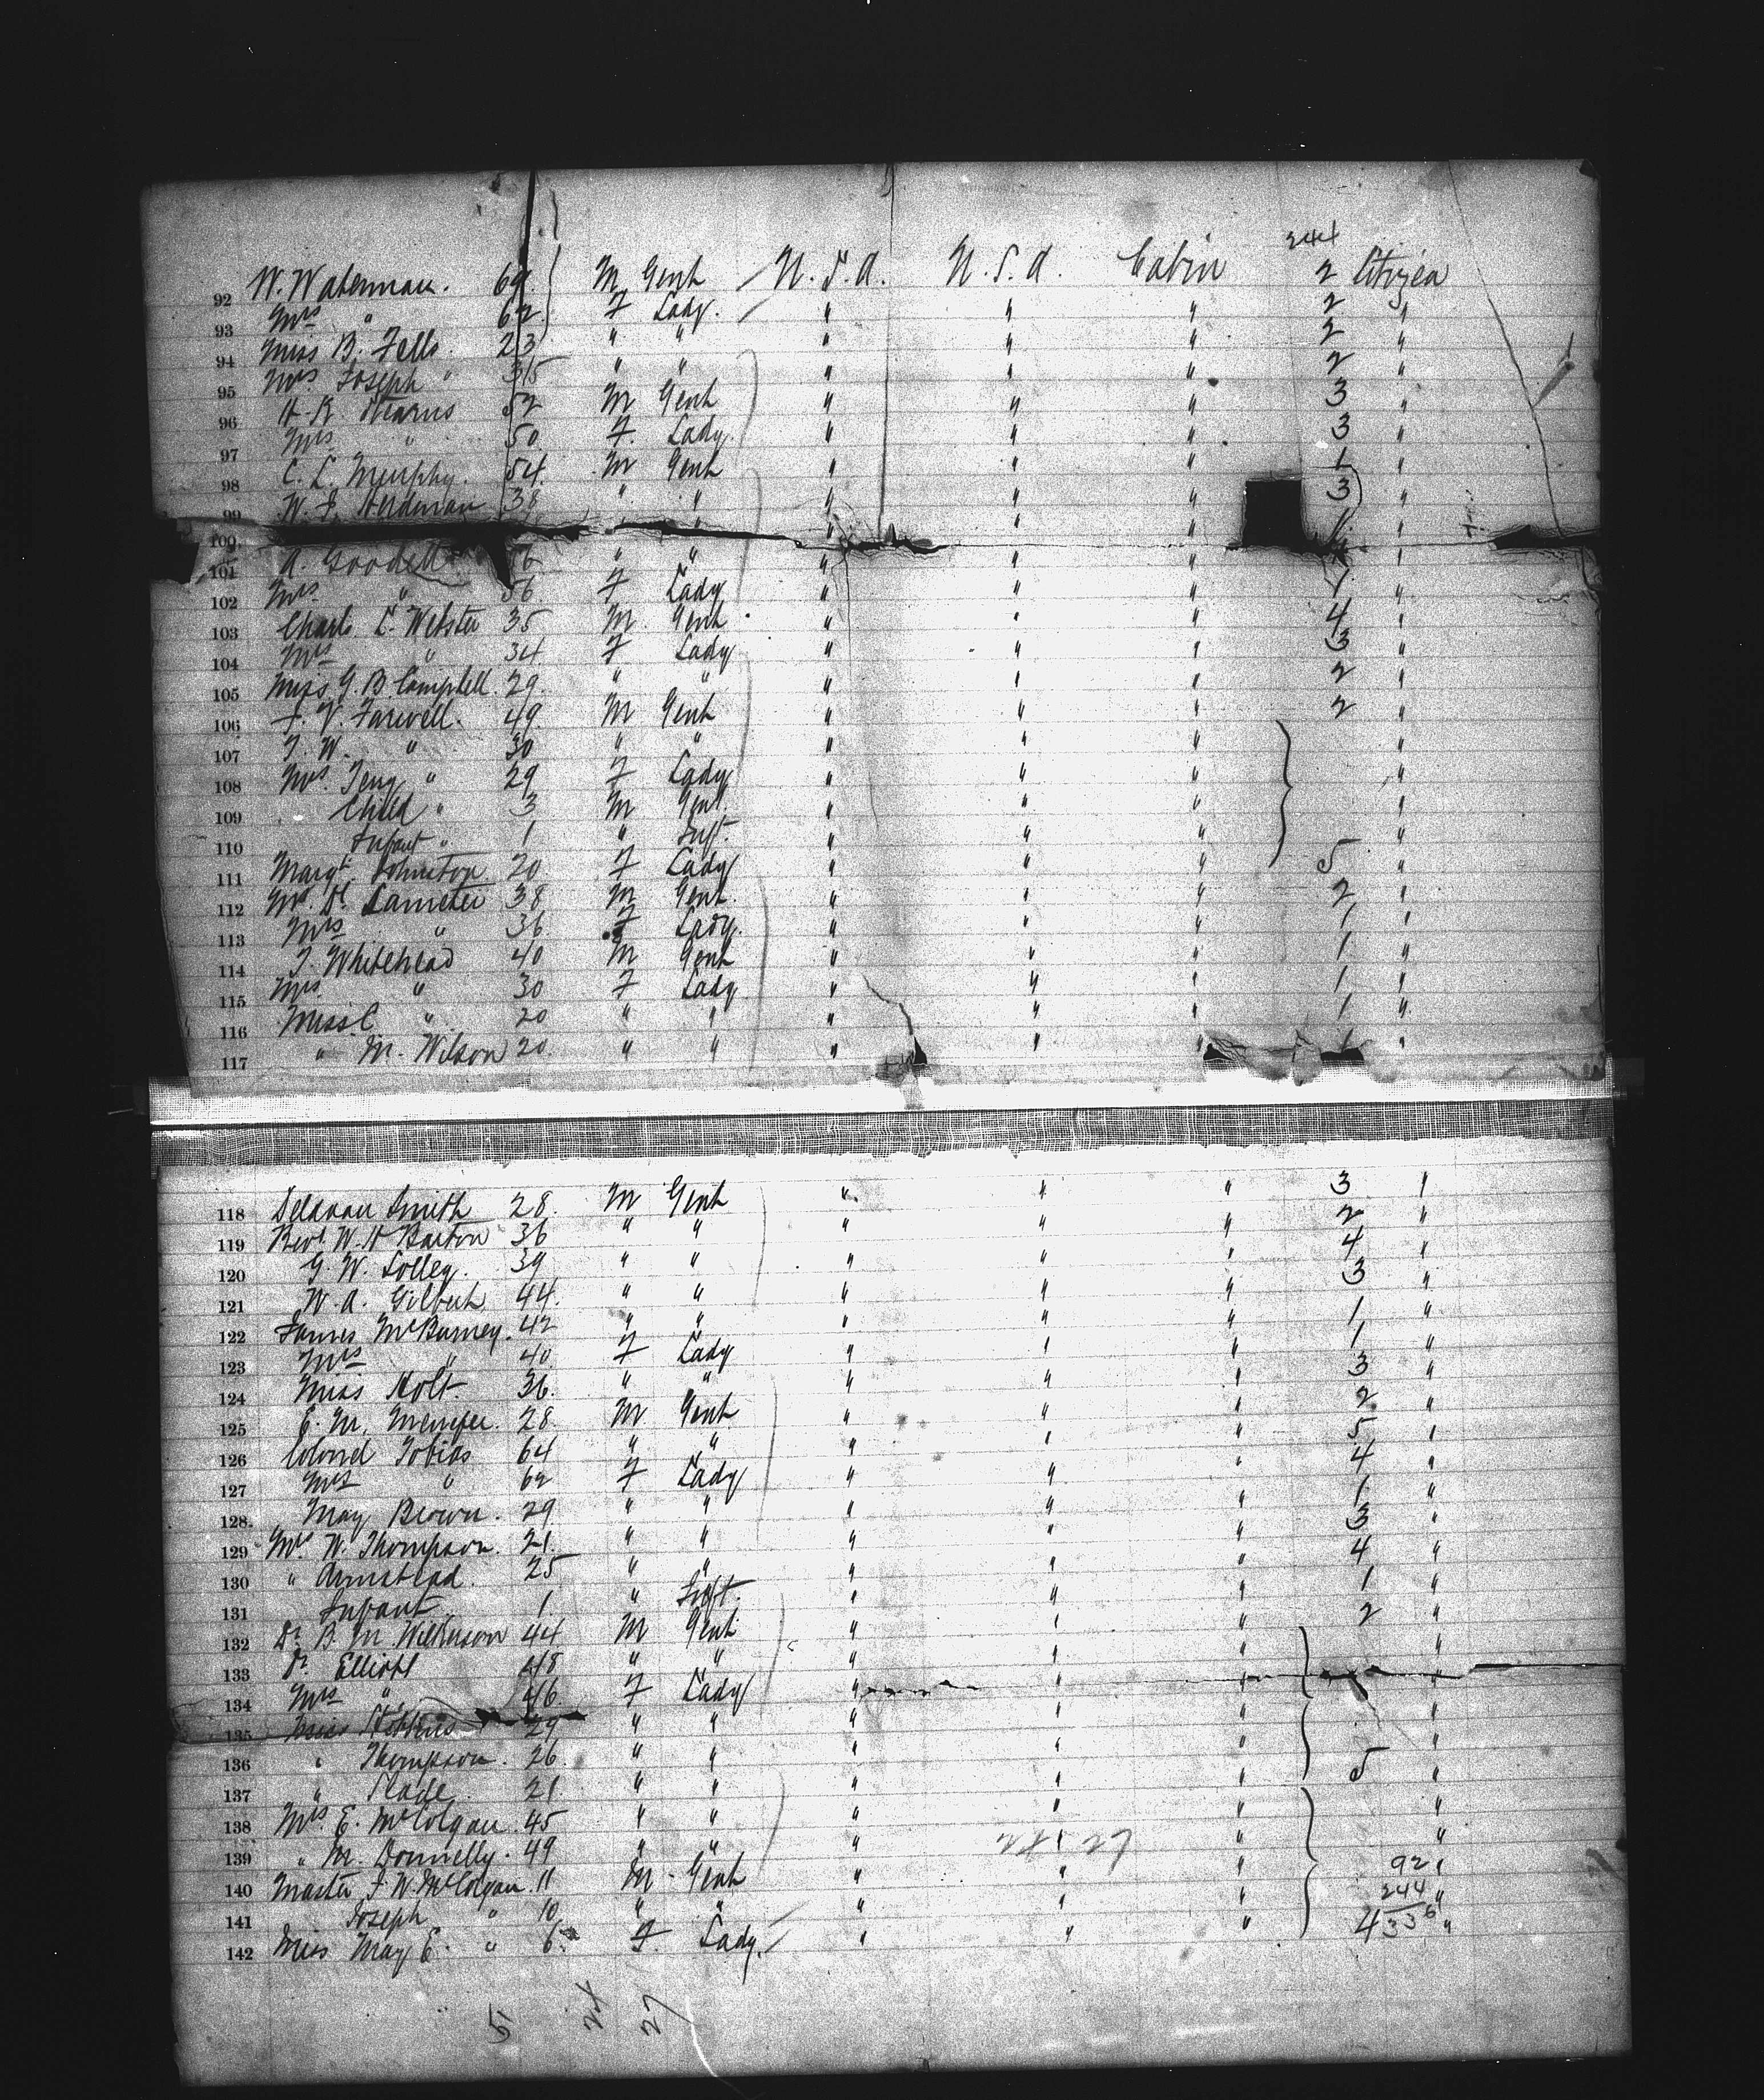 244
92 W. Waterman. 69. M Gent U. S. A. U. S. A. Cabin 2 Citizen
93 Mrs " 62 F Lady. " " " 2 "
94 Miss B. Fells. 23 " " " " " 2 "
95 Mrs Joseph " 35 " " " " " 2 "
96 H. R. Stearns 52 M Gent " " " 3 "
97 Mrs " 50 F. Lady. " " " 3 "
98 C. L. Murphy. 54. M Gent " " " 1 "
99 W. F. Herdman 38 " " " " " 3 "
100
101 A. Goodell 6 " " " " "
102 Mrs " 56 F Lady " " " 1 "
103 Charls. L. Webster 35 M. Gent " " " 4 "
104 Mrs " 34 F Lady " " " 3 "
105 Miss G. B Campbell. 29. " " " " " 2 "
106 J. V. Farwell. 49 M Gent " " " 2 "
107 J. W. " 30 " " " " " "
108 Mrs. Jeny " 29 F Lady " " " "
109 Child " 3 M Gent. " " " "
110 Infant " 1 " Inft. " " " "
111 Margt. Johnston 20 F Lady " " " 5 "
112 Mr. D. Lameter 38 M Gent. " " " 2 "
113 Mrs " 36. F Lady. " " " 1 "
114 J. Whitehead 40 M Gent " " " 1 "
115 Mrs. " 30 F Lady " " " 1 "
116 Miss C " 20 " " " " " 1 "
117 " M. Wilson 20. " " " " " 1 "
118 Delavan Smith 28. M Gent " " " 3 "
119 Revd. W. H Barton 36 " " " " " 2 "
120 G. W. Lolley. 39 " " " " " 4 "
121 W. A. Gilbert 44. " " " " " 3 "
122 James McBurney. 42 " " " " " 1 "
123 Mrs " 40 F Lady " " " 1 "
124 Miss Holt 36. " " " " " 3 "
125 E. M. 28 M Gent " " " 2 "
126 Colonel Tobias 64 " " " " " 5 "
127 Mrs " 62 F Lady " " " 4 "
128. May Brown. 29 " " " " " 1 "
129 Mrs W. Thompson. 21. " " " " " 3 "
130 " Armstead. 25 " " " " " 4 "
131 Infant " 1. " Inft. " " " 1 "
132 Dr. B. M. Wilkinson 44 M Gent " " " 2 "
133 Dr. Elliott 48 " " " " " "
134 Mrs " 46. F Lady " " " "
135 Miss 29 " " " " " "
136 " Thompson. 26. " " " " " 5 "
137 " Slade. 21. " " " " " "
138 Mrs E. McColgan. 45 " " " " " "
139 " M. Donnelly. 49 " " " " " "
140 Master J. W. McColgan. 11 M - Gent " " " 92 "
141 Joseph " 10 " " " " " 244 "
142 Miss May E. " 6. F. Lady. " " " 4 336 "
24 27
5 24 27